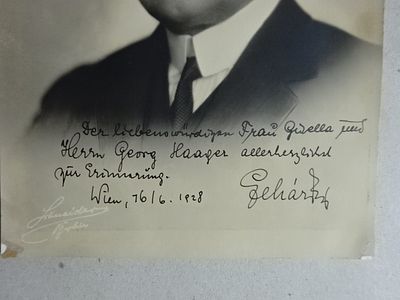 Der liebenswürdigen Frau Gisella und
Herrn Georg Haager allerherzlichst
zur Erinnerung.
Wien, 16/6. 1928
Lehár
Schneider
Berlin